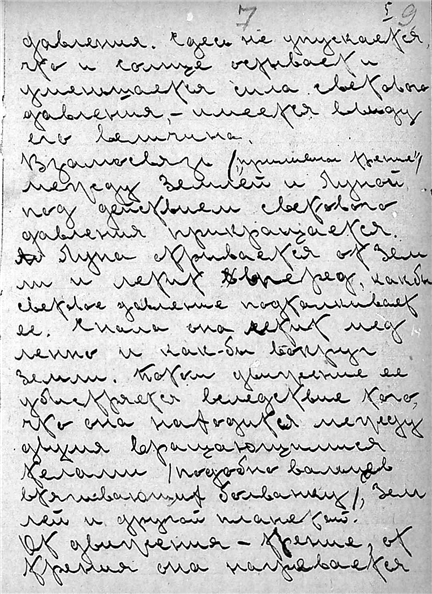 7 5 9
давления. Здесь не упускается,
что и солнце остывает и
уменьшается сила светового
давления, – имеется ввиду
его величина.
Взаимосвязь
между Землей и Луной
под действием светового
давления прикращается.
Луна отрывается от Зем
ли и летит вперед, как бы
светлое давление подталкивает
ее. Снала она летит мед
ленно и как-бы вокруг
Земли. Потом движение ее
убыстряется вследствие того,
что она находится между
двумя вращающимися
телами /подобно вальцев
втягивающих болванку/, Зем
лей и другой планетой.
От движения – трение, от
трения она нагревается